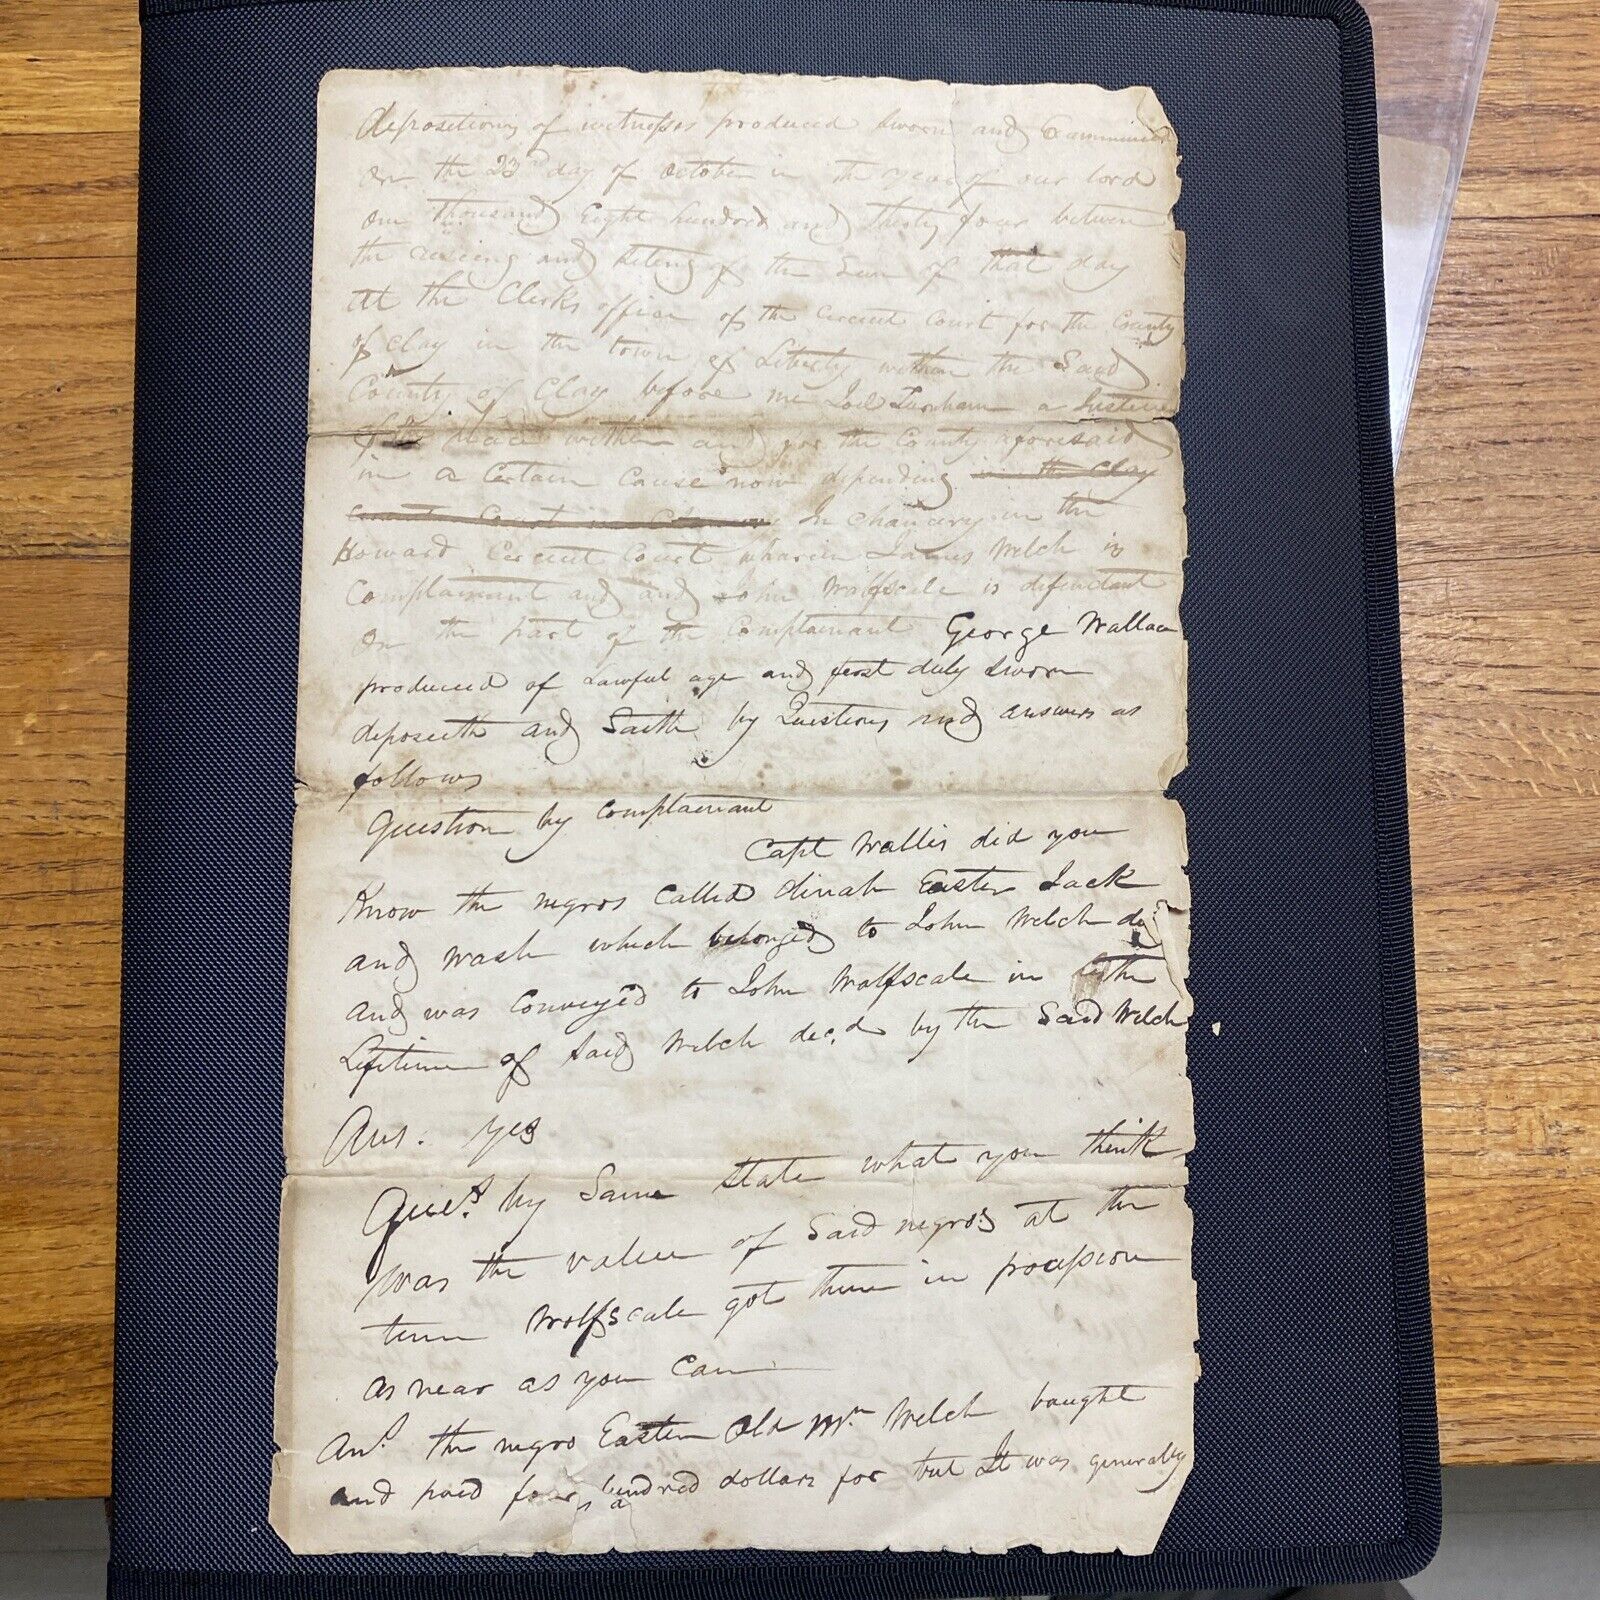 depositions of witnesses produced sworn and Examined
on the 23rd day of October in the year of our lord
one thousand Eight hundred and thirty four between
the riseing and seting of the Sun of that day
At the Clerks office of the Cercuit Court for the County
of Clay in the town of Liberty within the Said
County of Clay before me Joel Turnham a Justice
of the Peace within and for the County aforesaid
in a Certain Cause now depending in the Clay
Court in Chancery In Chancery in the
Howard Cercuit Court wharein James Welch is
Complainant and and John Wolfscale is defendant
On the part of the Complainant George Wallace
produced of Lawful age and first duly sworn
deposeeth and Saith by Questions and answers as
follows
Question by Complainant
Capt Wallis did you
Know the negros Called dinah Easter Jack
and wash which belonged to John Welch
and was Conveyed to John Wolfscale in the
Lifetime of Said Welch dec.d by the Said Welch
Ans. yes
Ques.t by Same State what you think
was the value of Said negros at the
time Wolfscale got them in possession
as near as you Can
An.s the negro Easter Old Mrs Welch bought
and paid four hundred dollars for but It was generally